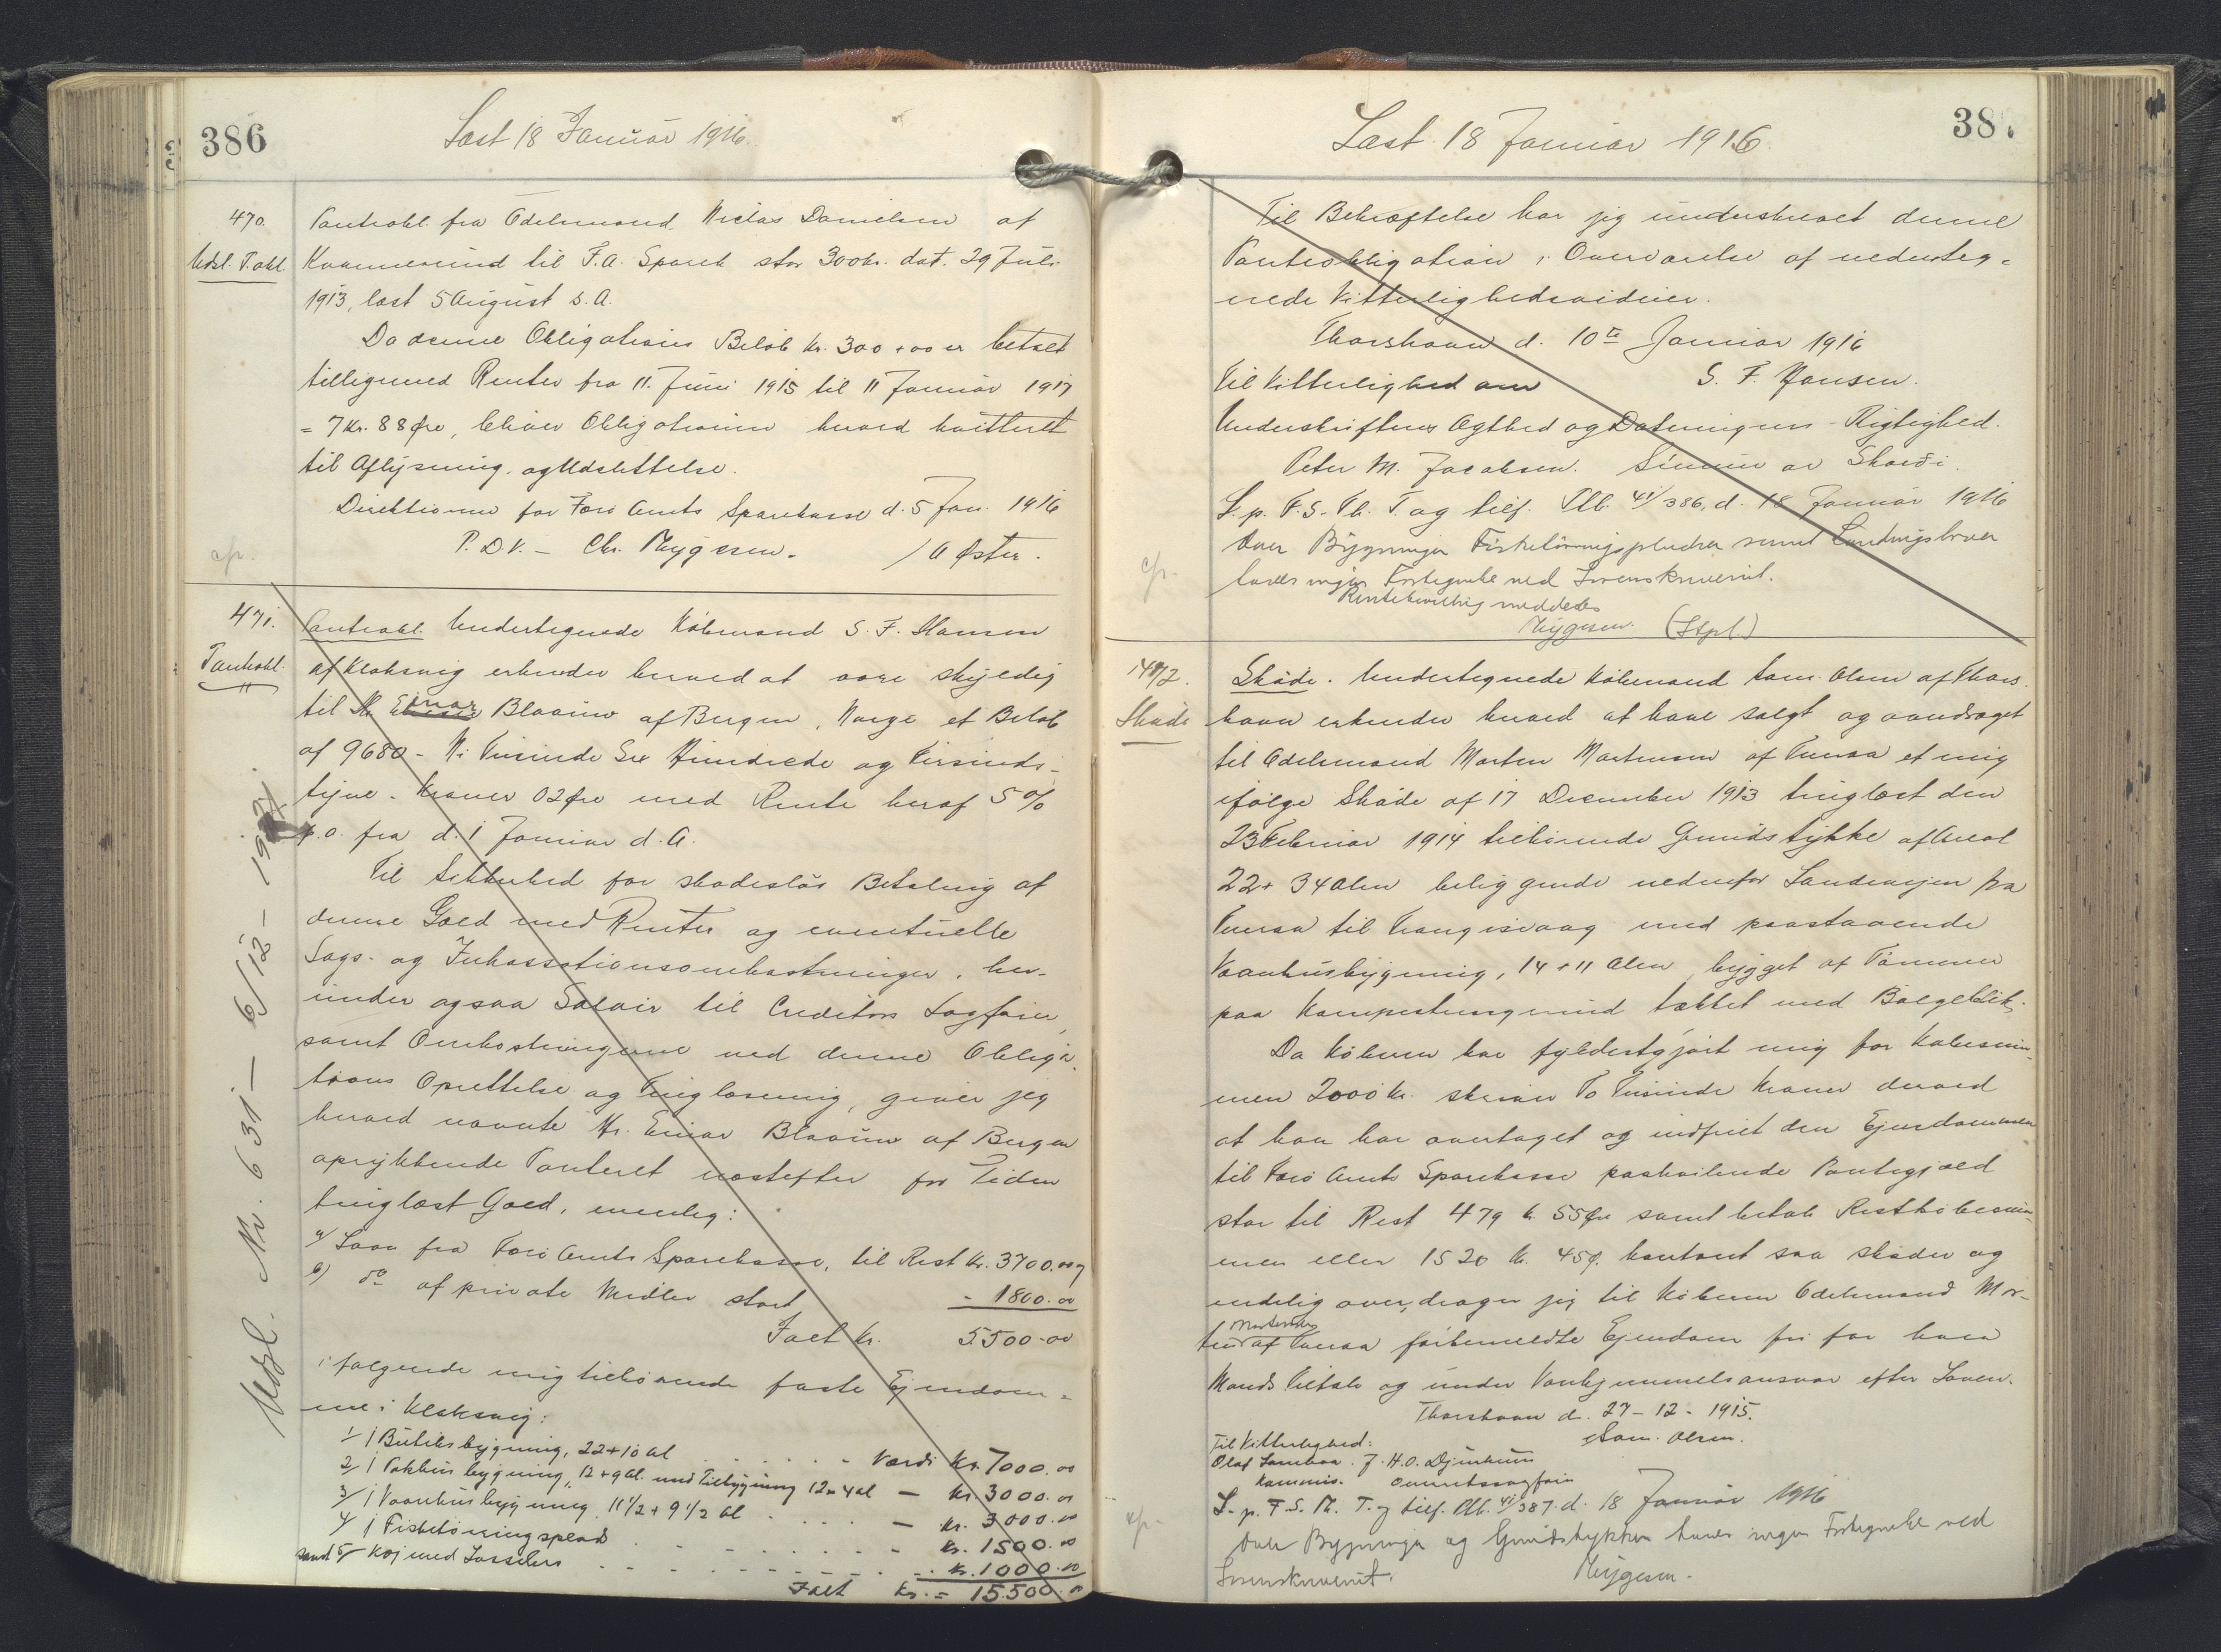 386
Læst 18 Januar 1916.
470.
Udsl. P.obl.
Pantobl. fra Odelsmand Niclas Danielsen af
Kvannesund til F.A. Spareh stor 300 kr. dat. 29 Juli
1913, læst 5 August s.A.
Da denne Obligations Beløb Kr. 300,00 er betalt
tilligemed Renter fra 11. Juni 1915 til 11 Januar 1917
= 7 Kr. 88 Øre, bliver Obligationen herved kvitteret
til Aflysning og Udslettelse.
Direktionen for Færø Amts Sparekasse d. 5 Jan. 1916
P.D.V. – Chr. Mygesen. / A Øster.
471.
Pantobl.
Pantobl. Undertegnede Købmand S. F. Hansen
af Klaksvig erkender herved at være skyldig
til Hr. Einar Blaauw af Bergen, Norge et Beløb
af 9680 – Ni Tusinde Sex Hundrede og Firsinds-
tyve – Kroner 02 Øre med Rente heraf 5 %
p.a. fra d. 1 Januar d. A.
Til Sikkerhed for skadesløs Betaling af
denne Gæld med Renter og eventuelle
Sags- og Inkassationsomkostninger, her-
under ogsaa Salair til Creditors Sagfører,
samt Omkostningerne ved denne Obliga-
tions Oprettelse og Tinglæsning, giver jeg
herved nævnte Hr. Einar Blaauw af Bergen
oprykkende Panteret næstefter for Tiden
tinglæst Gæld, nemlig:
a/ Laan fra Færø Amts Sparekasse, til Rest Kr. 3700.00
b) do af private Midler stort – 1800.00
Ialt Kr. 5500-00
i følgende mig tilhørende faste Ejendom-
me i Klaksvig:
1/ 1 Butiksbygning, 22+10 al . . . . . Værdi Kr. 7000.00
2/ 1 Pakhusbygning, 12+9 al. med Tilbygning 12x4 al – Kr. 3000.00
3/ 1 Vaanhusbygning 11 1/2 + 9 1/2 al . . . . – Kr. 3000.00
4/ 1 Fisketørringsplads . . . . . . – Kr. 1500.00
samt 5/ Køj med . . . . . . Kr. 1000.00
Ialt Kr. = 15.500.00
Udsl. Nr. 631 – 6/12 – 1921.
387
Læst 18 Januar 1916.
Til Bekræftelse har jeg underskrevet denne
Pantobligation i Overværelse af underteg-
nede Vitterlighedsvidner.
Thorshavn d. 10de Januar 1916
Til Vitterlighed om S. F. Hansen.
Underskriftens Ægthed og Dateringens Rigtighed.
Peter M. Jacobsen. Símun av Skarði.
L. p. F. S. Th. T. og tilf. Plb. 41/386, d. 18 Januar 1916
Over Bygninger Fisketørringspladser samt Landingsbroer
haves ingen Fortegnelse ved Sorenskriveriet.
Rentebevilling meddeles
Mygesen. (Stpl.)
472.
Skøde
Skøde. Undertegnede Købmand Sam. Olsen af Thors-
havn erkender herved at have solgt og overdraget
til Odelsmand Morten Mortensen af Tveraa et mig
ifølge Skøde af 17 December 1913 tinglæst den
23 Februar 1914 tilhørende Grundstykke af Areal
22 + 34 Alen beliggende nedenfor Landevejen fra
Tveraa til Trangisvaag med paastaaende
Vaanhusbygning, 14 + 11 Alen bygget af Tømmer
paa Kampestensgrund tækket med Bølgeblik.
Da Køberen har fyldestgjort mig for Købesum-
men 2000 Kr. skriver To Tusinde Kroner derved
at han har overtaget og indfriet den Ejendommen
til Færø Amts Sparekasse paahvilende Pantegjæld
stor til Rest 479 k. 55 Øre samt betalt Restkøbesum-
men eller 1520 Kr. 45 Ø. kontant saa skøder og
endelig overdrager jeg til Køberen Odelsmand Mor-
ten Mortensen af Tveraa førbemeldte Ejendom fri for hver
Mands Tiltale og under Vanhjemmelsansvar efter Loven.
Thorshavn d. 27 – 12 – 1915.
Til Vitterlighed: Sam. Olsen.
Olaf Lamhauge. J. H. O. Djurhuus
Kommis. Overretssagfører
L. p. F. S. Th. T. og tilf. Plb. 41/387. d. 18 Januar 1916
Over Bygninger og Grundstykker haves ingen Fortegnelse ved
Sorenskriveriet. Mygesen.